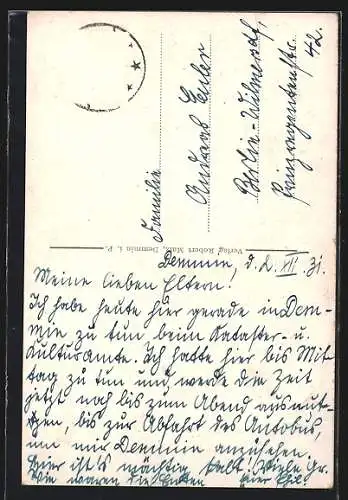 Familie
Andreas Euler
Berlin-Wilmersdf,
Prinzregentenstr.
42.
Verlag Robert Matz, Demmin i. P.
Demmin, d. 2. XII. 31.
Meine lieben Eltern!
Ich habe heute hier gerade in Dem-
min zu tun beim Kataster- u.
Kulturamte. Ich hatte hier bis Mit-
tag zu tun und werde die Zeit
jetzt noch bis zum Abend ausnut-
tzen, bis zur Abfahrt des Autobus,
um mir Demmin anzusehen.
Hier ist's mächtig kalt! Viele Gr.
Wie waren die